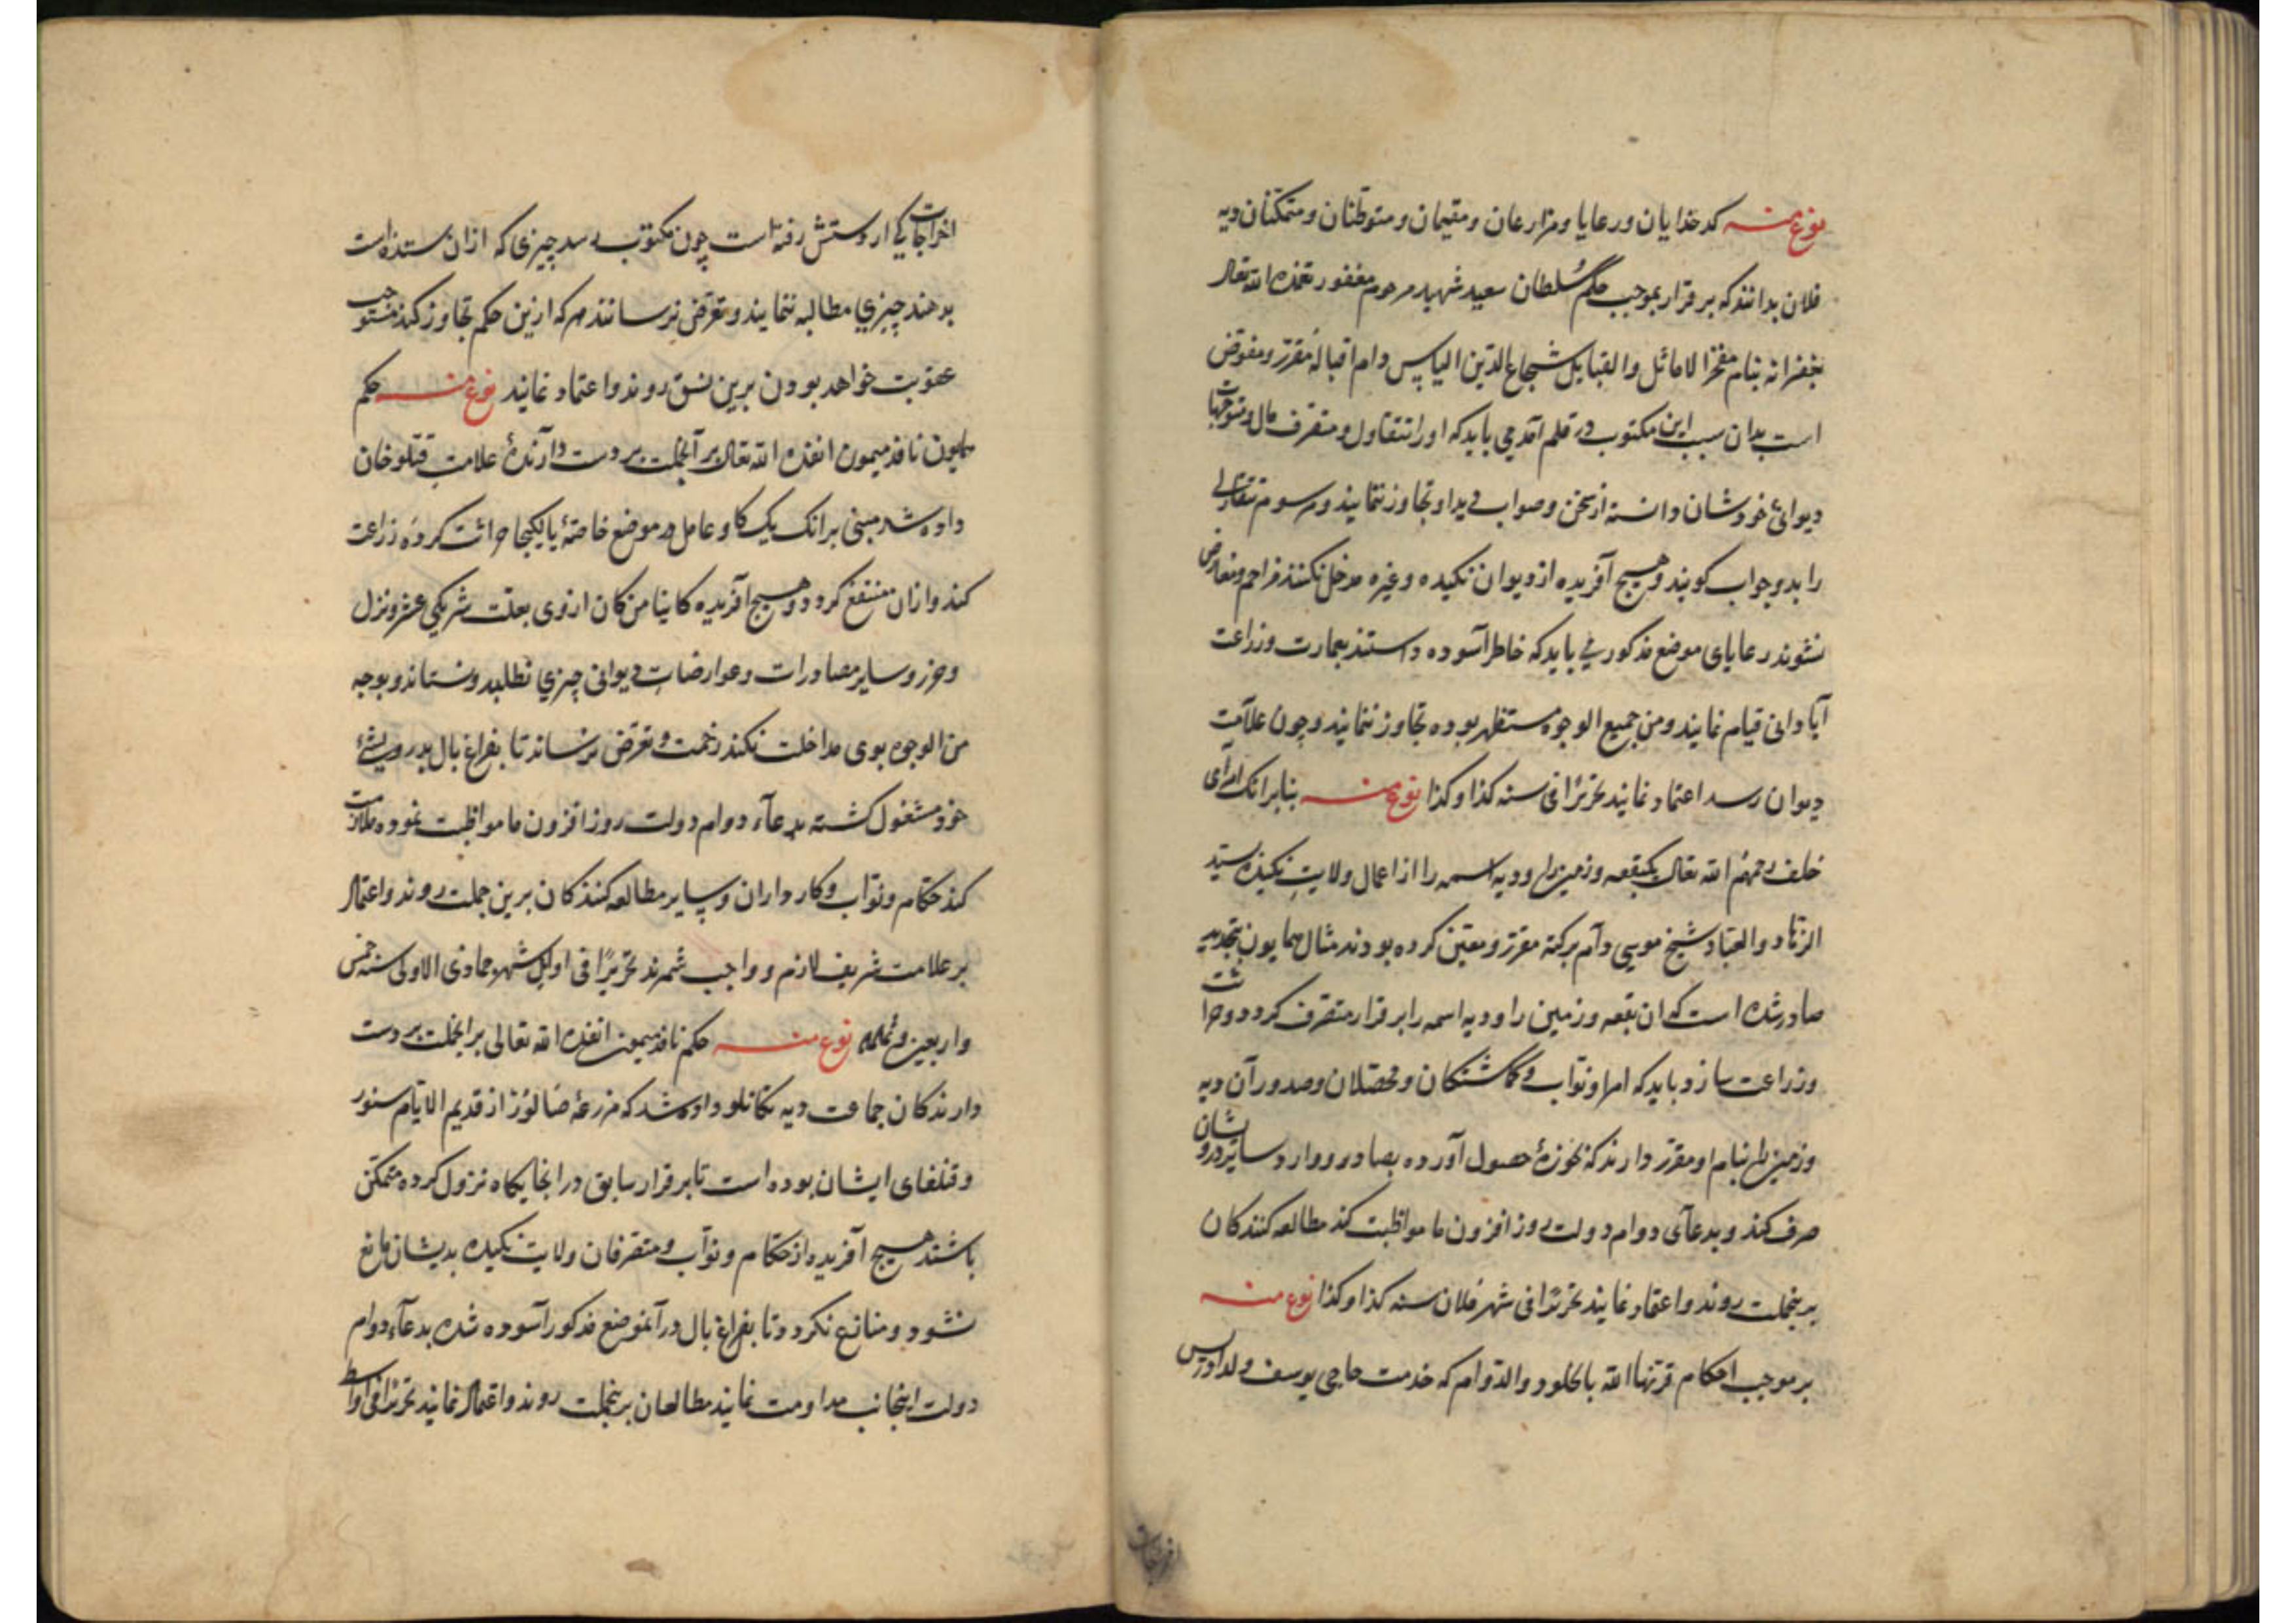 نوع منه کدخدایان ورعایا ومزارعان ومقیمان ومتوطنان ومتمکنان دیه
فلان بدانند که برقرار بموجب حکم سُلطان سعید شهید مرحوم مغفور تغمّده الله تعالی
بغفرانه بنام مفخر الاماثل والقبایل شجاع الدین الیاس دام اقباله مقرر ومفوض
است بدان سبب این مکتوب در قلم آمد می باید که اورا متصرف مال ومتوجهات
دیوانئ خودشان دانسته از سخن وصواب دید او تجاوز ننمایند ورسوم
را بدو جواب کویند وهیچ آفریده از دیوان نکیده وغیره مدخل نکنند مزاحم ومعارض
نشوند رعایای موضع مذکور می باید که خاطر آسوده داشته بعمارت وزراعت
آبادانی قیام نمایند ومن جمیع الوجوه مستظهر بوده تجاوز ننمایند وچون علامت
دیوان رسد اعتماد نمایند تحریرًا فی سنه کذا وکذا نوع منه بنابرانک امرای
خلف رحمهم الله تعالی یکبقعه وزمین را ودیه اسمه را از اعمال ولایت نکیده سید
الزهاد والعباد شیخ موسی دام برکته مقرر ومعین کرده بودند مثال همایون بتجدید
صادر شده است که ان بقعه وزمین را ودیه اسمه را برقرار متصرف کردد وحراثت
وزراعت سازد باید که امرا ونواب وکماشتکان ومحصلان وصدور آن دیه
وزمین را بنام او مقرر دارند که بحوزهٔ حصول آورده بصادر ووارد وسایر درویشان
صرف کند وبدعآی دوام دولت روزافزون ما مواظبت کند مطالعه کنندکان
برینجملت روند واعتماد نمایند تحریرًا فی شهر فلان سنه کذا وکذا نوع منه
بر موجب احکام قرنها الله بالخلود والدوام که خدمت حاجی یوسف ولد ادریس
اخراجات
اخراجات که از دستش رفته است چون مکتوب رسد چیزی که ازان ستده است
بدهند چیزي مطالبه ننمایند وتعرض نرسانند هر که ازین حکم تجاوز کند مستوجب
عقوبت خواهد بودن برین نسق روند واعتماد نمایند نوع منه حکم
همایون نافذ میمون انفذه الله تعالی بر آنجملت بر دست دارندهٔ علامت قتلوخان
داده شد مبنی برانک یک کاو عامل در موضع خاصهٔ یا لیکجا حراثت کرده زراعت
کند وازان منتفع کردد وهیچ آفریده کاینا من کان ازوی بعلت شریکی عشر ونزل
وحرز وسایر مصادرات وعوارضات دیوانی چیزي نطلبد ونستاند وبوجه
من الوجوه بوی مداخلت نکند زحمت وتعرض نرساند تا بفراغ بال بدرویشئ
خود مشغول کشته بدعآء دوام دولت روزافزون ما مواظبت نموده ملازمت
کند حکام ونواب وکارداران وسایر مطالعه کنندکان برین جملت روند واعتماد
بر علامت شریف لازم وواجب شمرند تحریرًا فی اوایل شهر جمادی الاولی سنه خمس
واربعین وثلثمایه نوع منه حکم نافذ میمون انفذه الله تعالی بر اینجملت بر دست
دارندکان جماعت دیه داده شد که مزرعهٔ از قدیم الایام سنور
وقتلغای ایشان بوده است تا برقرار سابق در انجایکاه نزول کرده متمکن
باشند هیچ آفریده از حکام ونواب ومتصرفان ولایت نکیده بدیشان مانع
نشود ومنازع نکردد تا بفراغ بال در آنموضع مذکور آسوده شده بدعآء دوام
دولت اینجانب مداومت نمایند مطالعان برینجملت روند واعتماد نمایند تحریرًا فی اواسط